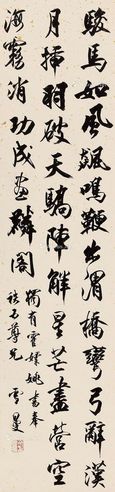 駿馬如風飆鳴鞭出渭橋彎弓辭漢
月插羽破天驕陣解星芒盡營空
海霧消功成畫麟閣
獨有霍嫖姚 書奉
石尊兄